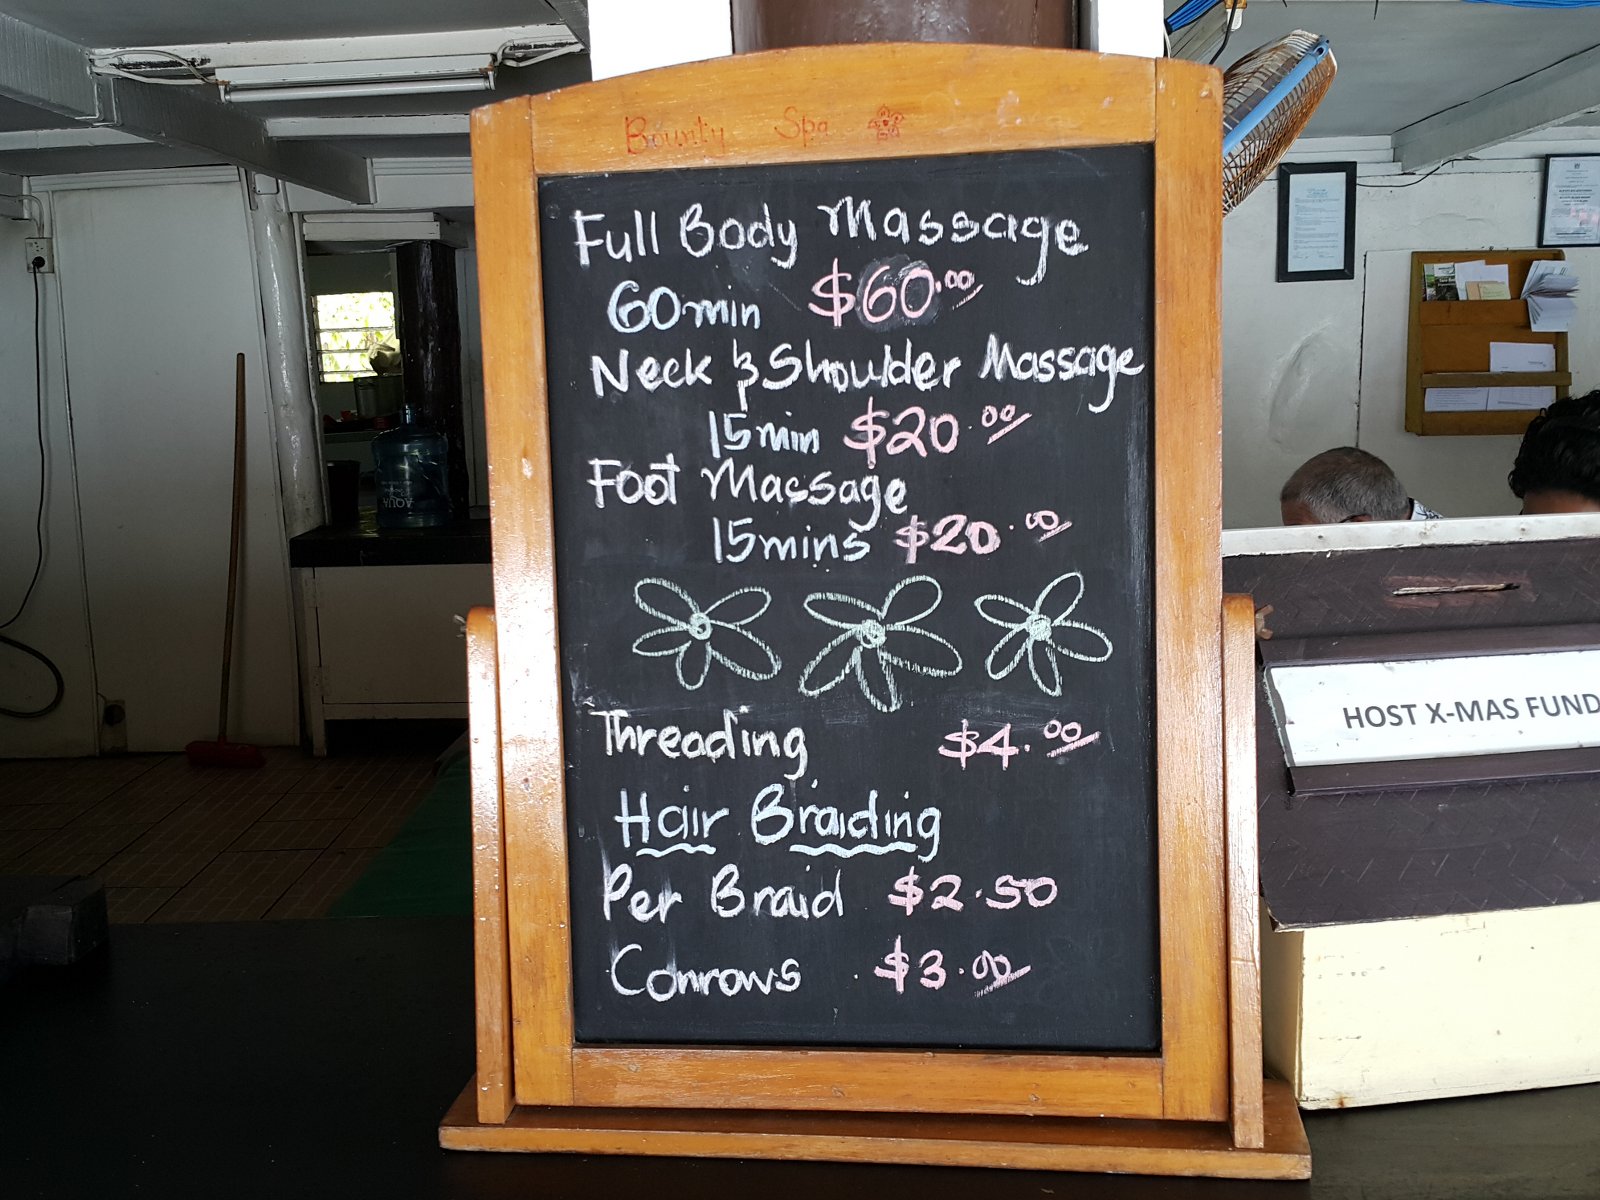 Bounty Spa
Full Body Massage
60min $60.00
Neck & Shoulder Massage
15min $20.00
Foot Massage
15mins $20.00
Threading $4.00
Hair Braiding
Per Braid $2.50
Conrows $3.00
HOST X-MAS FUND
AQUA